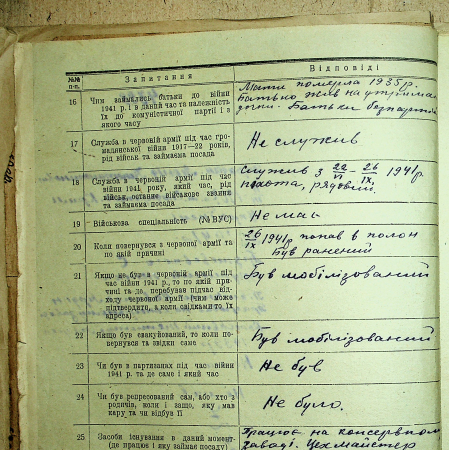 №№ п-п.
Запитання
Відповіді
16
Чим займались батьки до війни
1941 р. і в даний час та належність
їх до комуністичної партії і з
якого часу
Мати померла 1935 р.
Батько жив на утриман
дочки. Батьки безпартій
17
Служба в червоній армії під час гро-
мадянської війни 1917—22 років,
рід військ та займаєма посада
Не служив
18
Служба в червоній армії під час
війни 1941 року, який час, рід
військ, останнє військове звання
та займаєма посада
Служив з 22/VI — 26/IX 1941 р
піхота, рядовий.
19
Військова спеціальність (№ ВУС)
Не маю
20
Коли повернувся з червоної армії та
по якій причині
26/IX 1941 р попав в полон
Був ранений
21
Якщо не був в червоній армії під
час війни 1941 р., то по якій при-
чині та де перебував підчас від-
ходу червоної армії (чим може
підтвердити, а коли свідками то їх
адреса)
Був мобілізований
22
Якщо був евакуйований, то коли по-
вернувся та звідки саме
Був мобілізований
23
Чи був в партизанах під час війни
1941 р. та де саме і який час
Не був
24
Чи був репресований сам, або хто з
родичів, коли і защо, яку мав
кару та чи відбув її
Не було.
25
Засоби існування в даний момент
(де працює і яку займає посаду)
Працює на консервном
заводі. Цехмайстер